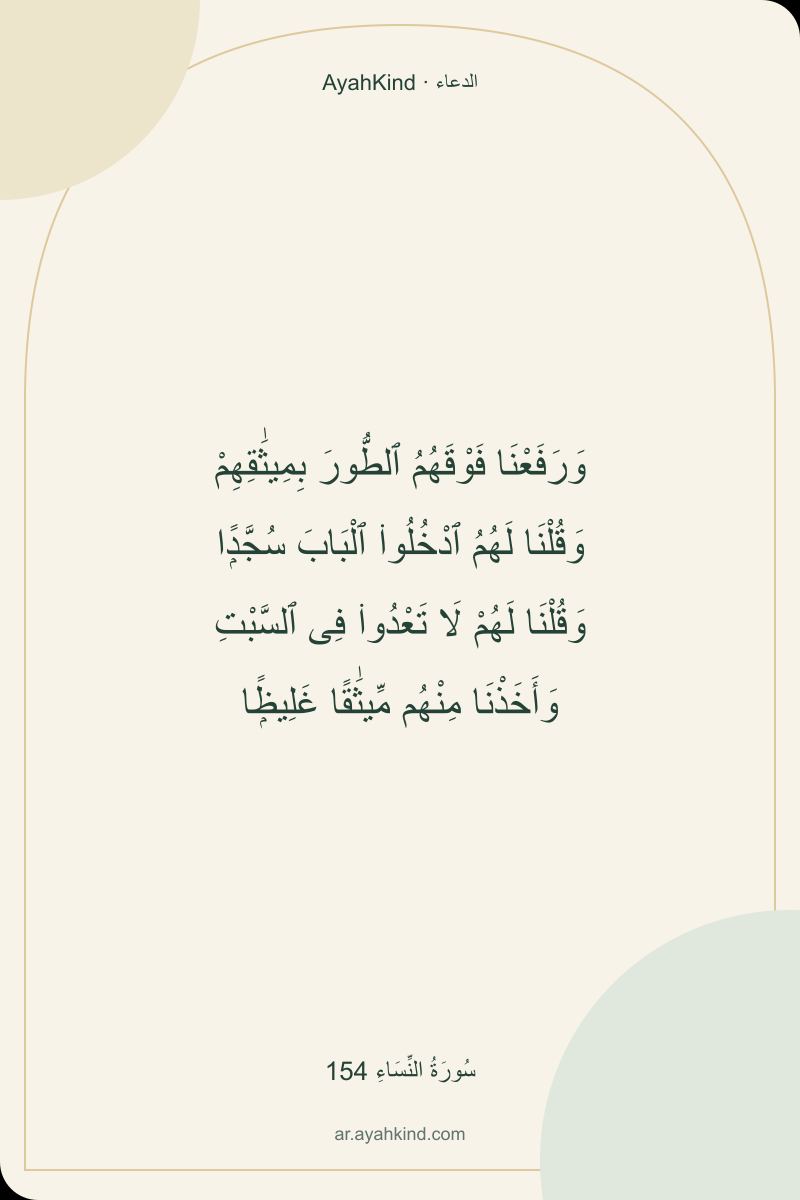 AyahKind · الدعاء
وَرَفَعْنَا فَوْقَهُمُ ٱلطُّورَ بِمِيثَٰقِهِمْ
وَقُلْنَا لَهُمُ ٱدْخُلُوا۟ ٱلْبَابَ سُجَّدًۭا
وَقُلْنَا لَهُمْ لَا تَعْدُوا۟ فِى ٱلسَّبْتِ
وَأَخَذْنَا مِنْهُم مِّيثَٰقًا غَلِيظًۭا
سُورَةُ النِّسَاءِ 154
ar.ayahkind.com